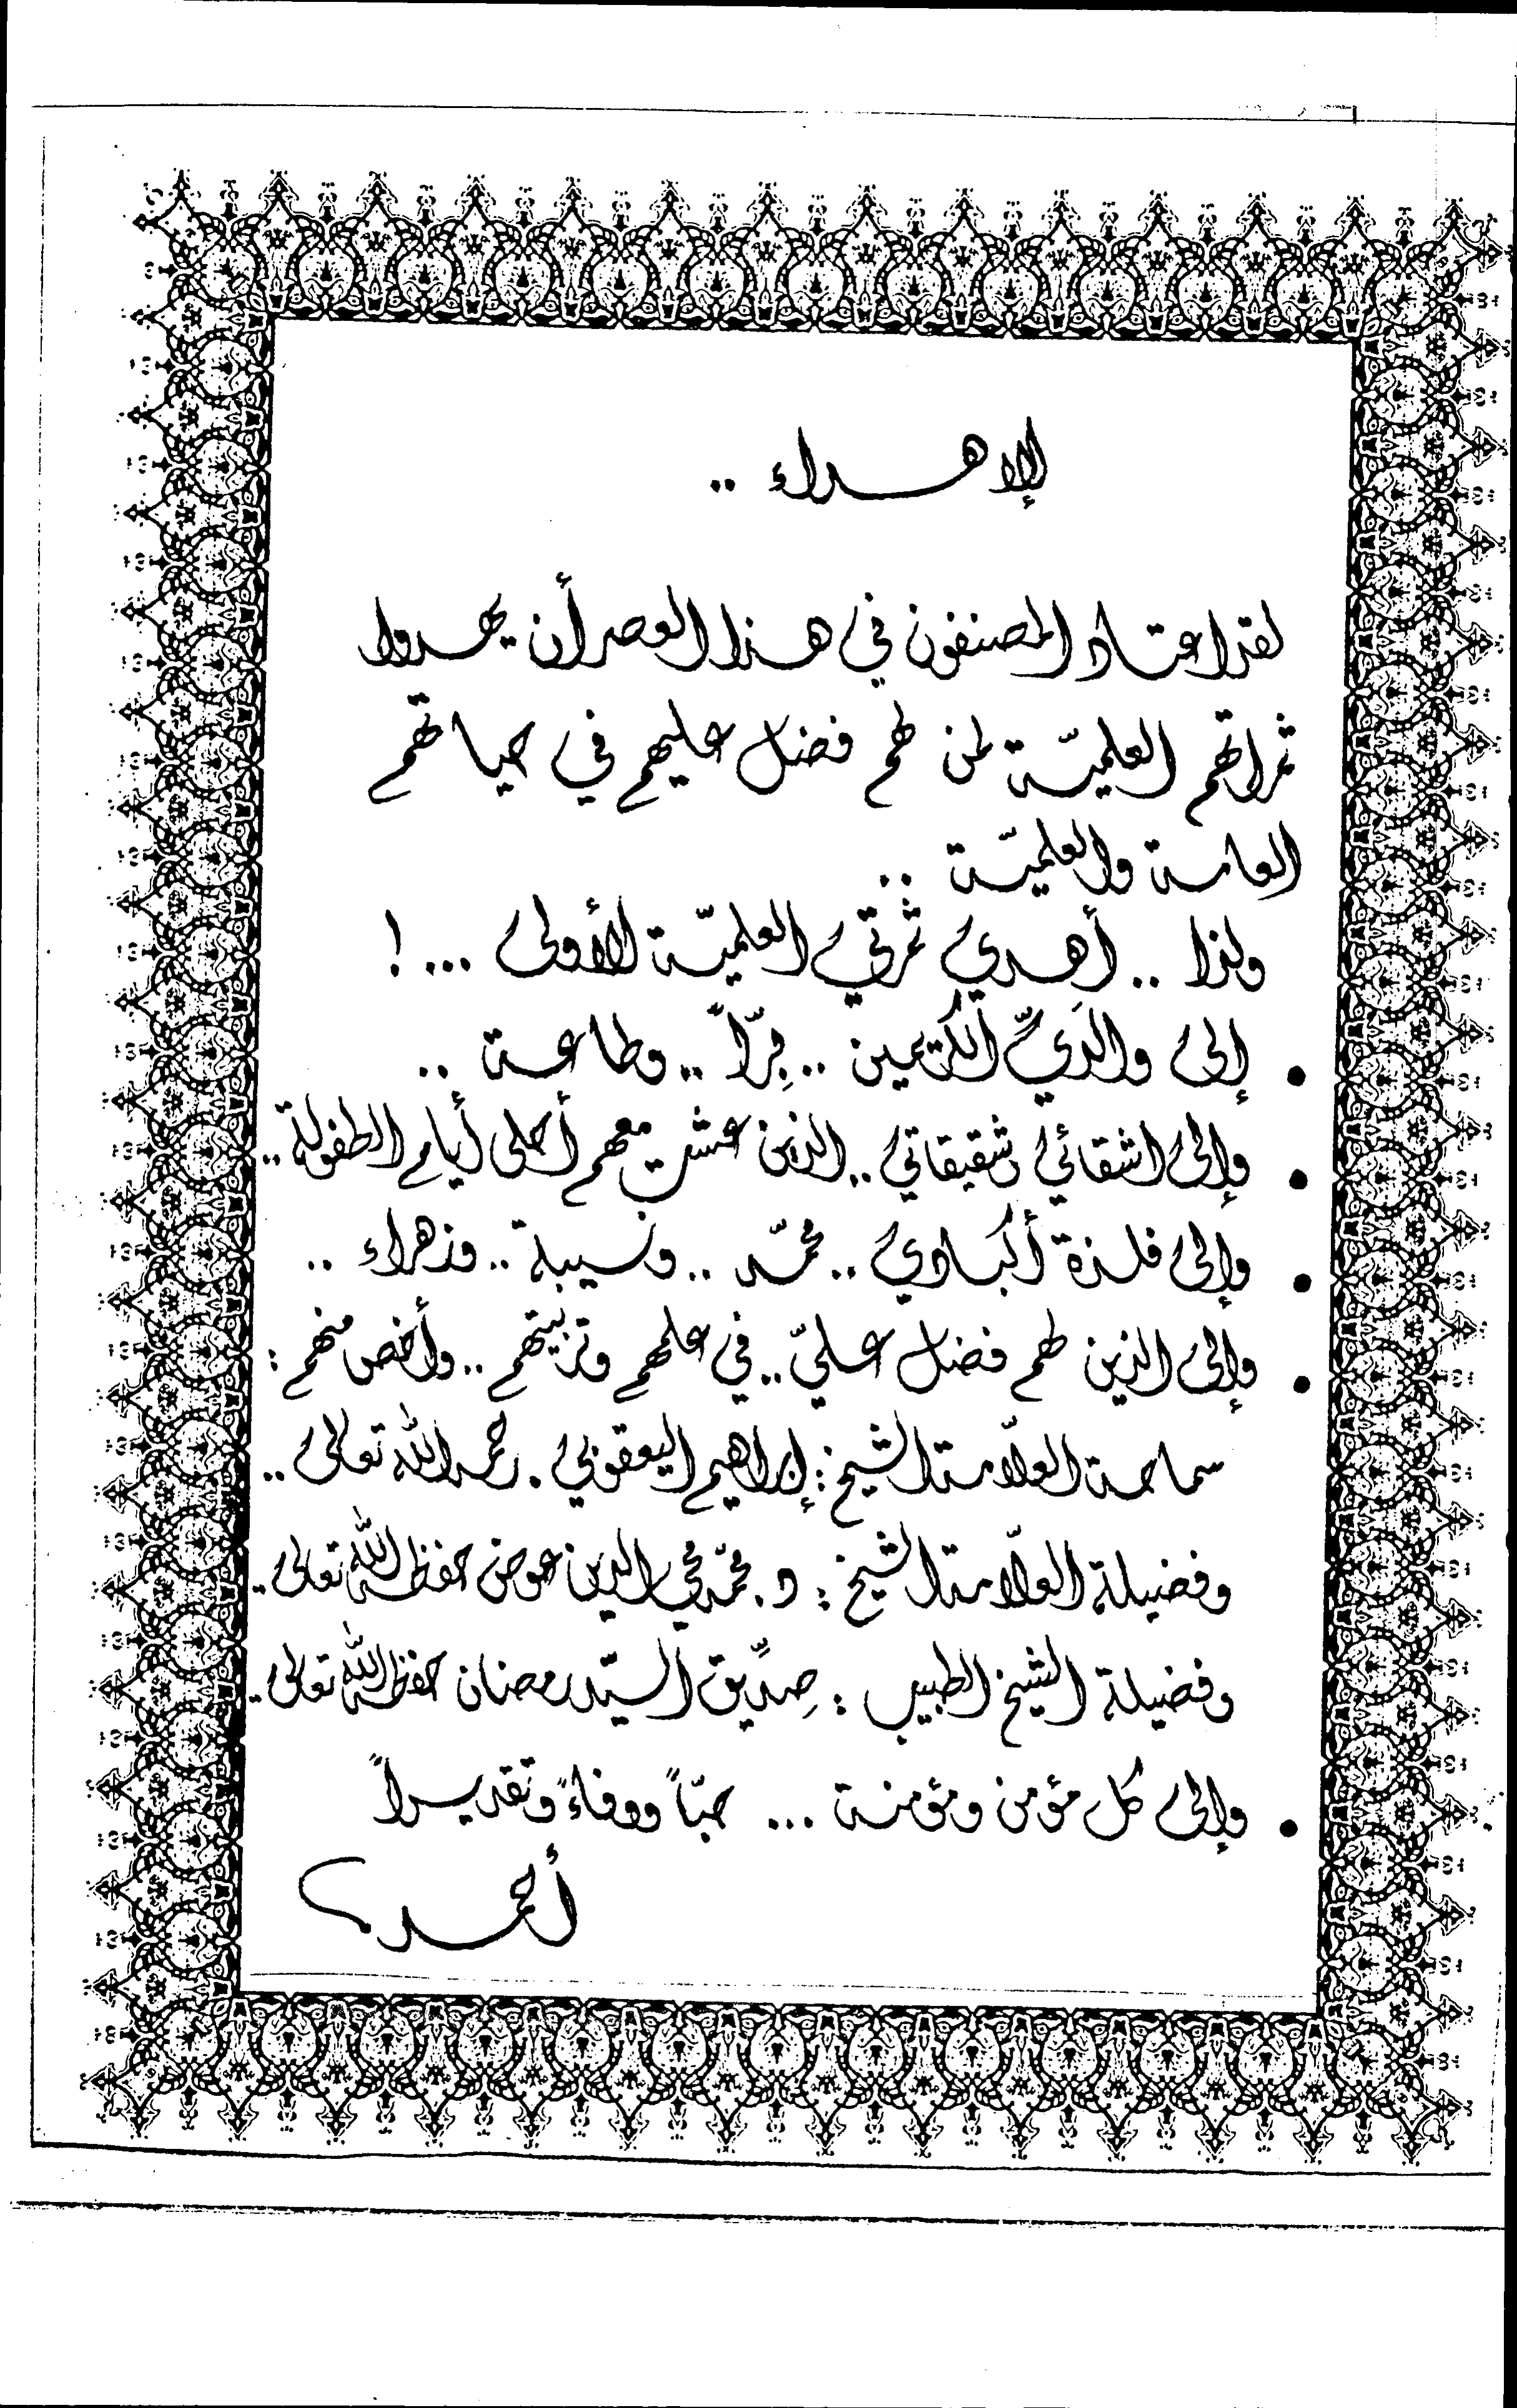 الإهداء ..
لقد اعتاد المصنفون في هذا العصر أن يهدوا
ثمراتهم العلميّة لمن لهم فضل عليهم في حياتهم
العامة والعلميّة ..
ولذا .. أهدي ثمرتي العلميّة الأولى ... !
• إلى والدَيَّ الكريمين .. بِرّاً .. وطاعة ..
• وإلى اشقائي وشقيقاتي .. الذين عشت معهم أحلى أيام الطفولة ..
• وإلى فلذة أكبادي .. محمّد .. ونسيبة .. وزهراء ..
• وإلى الذين لهم فضل عليّ .. في علمهم وتربيتهم .. وأخص منهم :
سماحة العلّامة الشيخ : إبراهيم اليعقوبي . رحمه الله تعالى ..
وفضيلة العلّامة الشيخ : د . محمّد محيي الدين عوض حفظه الله تعالى ..
وفضيلة الشيخ الطبيب : صِدِّيق السيّد رمضان حفظه الله تعالى ..
• وإلى كل مؤمن ومؤمنة ... حبّاً ووفاءً وتقديراً
أحمد